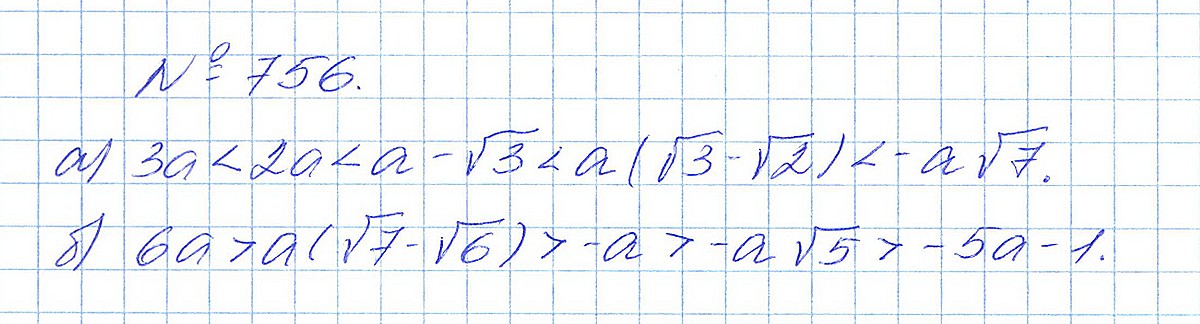 № 756.
а) 3a < 2a < a - √3 < a(√3 - √2) < -a√7.
б) 6a > a(√7 - √6) > -a > -a√5 > -5a - 1.